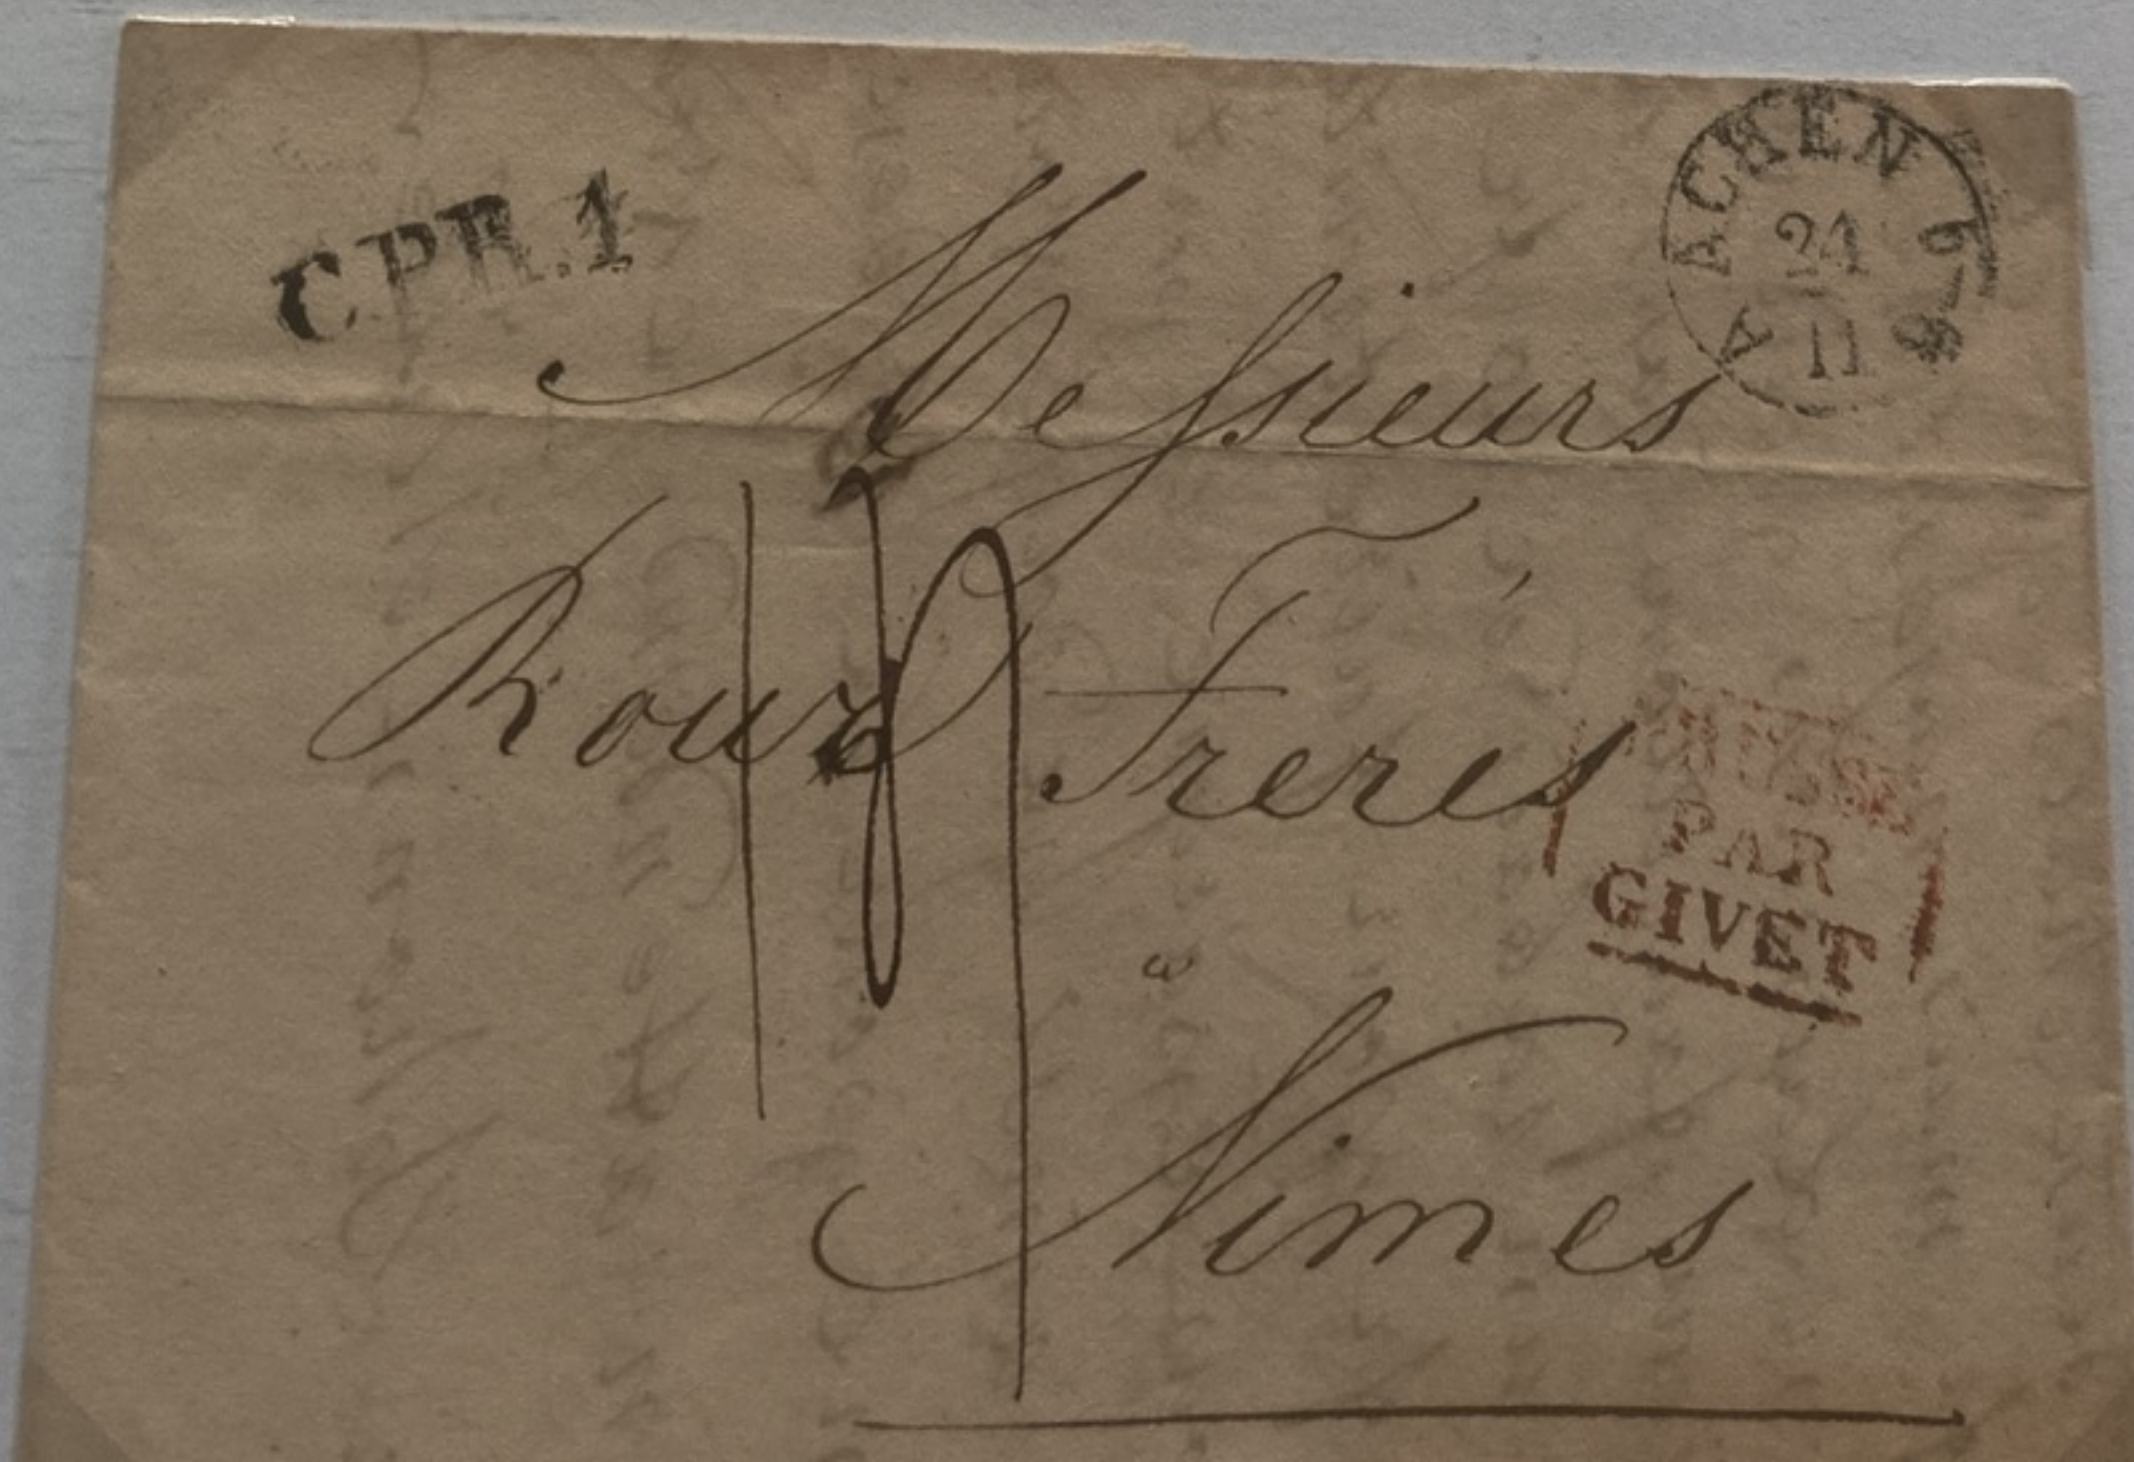 C.P.R.1
AACHEN
21
11
Messieurs
Roux Freres
PAR
GIVET
a
Nimes